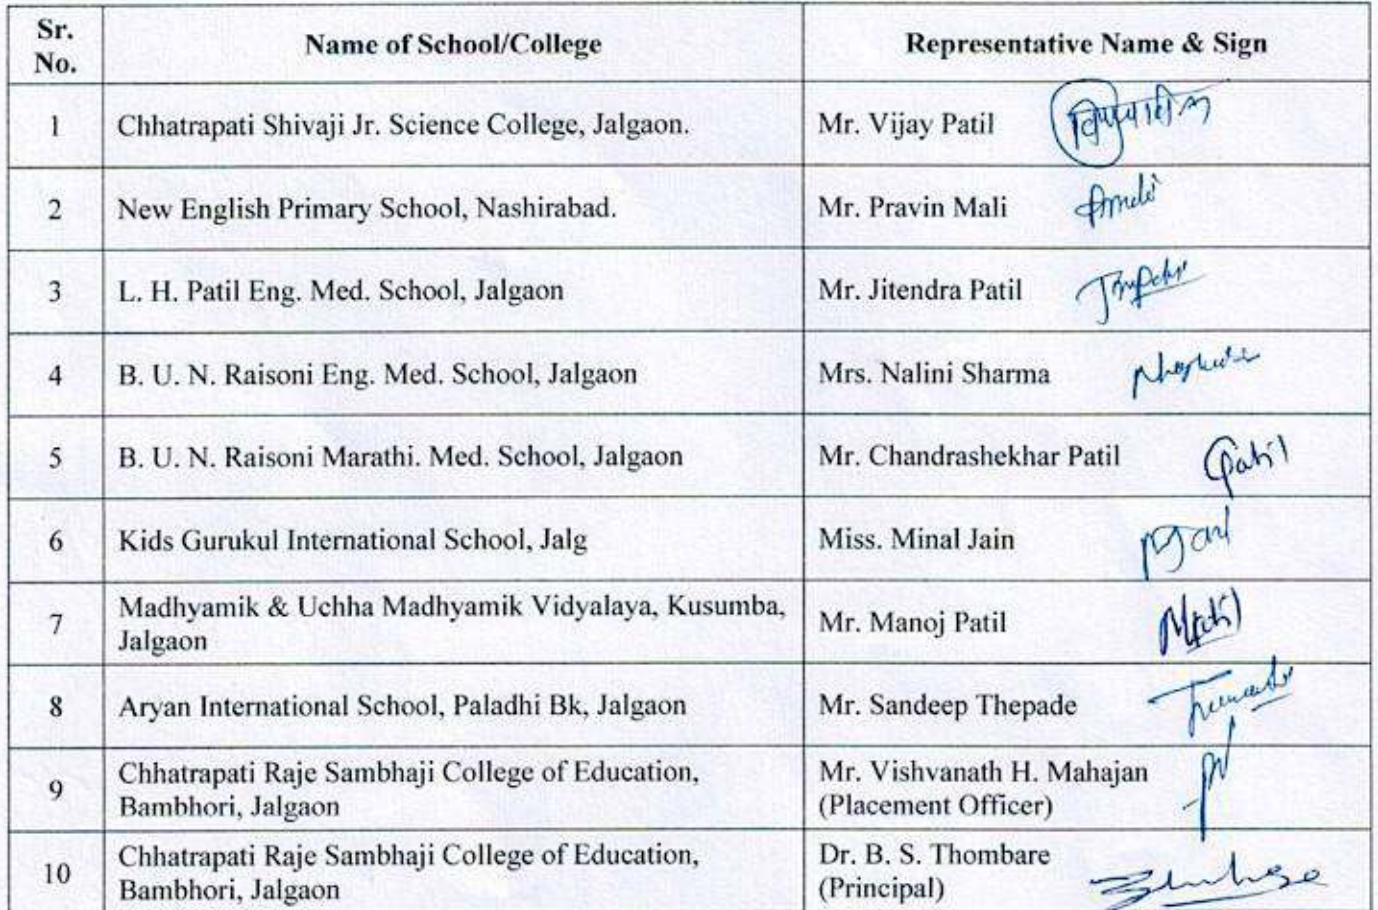 Sr.
No.
Name of School/College
Representative Name & Sign
1
Chhatrapati Shivaji Jr. Science College, Jalgaon.
Mr. Vijay Patil
2
New English Primary School, Nashirabad.
Mr. Pravin Mali
3
L. H. Patil Eng. Med. School, Jalgaon
Mr. Jitendra Patil
4
B. U. N. Raisoni Eng. Med. School, Jalgaon
Mrs. Nalini Sharma
5
B. U. N. Raisoni Marathi. Med. School, Jalgaon
Mr. Chandrashekhar Patil
6
Kids Gurukul International School, Jalg
Miss. Minal Jain
7
Madhyamik & Uchha Madhyamik Vidyalaya, Kusumba,
Jalgaon
Mr. Manoj Patil
8
Aryan International School, Paladhi Bk, Jalgaon
Mr. Sandeep Thepade
9
Chhatrapati Raje Sambhaji College of Education,
Bambhori, Jalgaon
Mr. Vishvanath H. Mahajan
(Placement Officer)
10
Chhatrapati Raje Sambhaji College of Education,
Bambhori, Jalgaon
Dr. B. S. Thombare
(Principal)